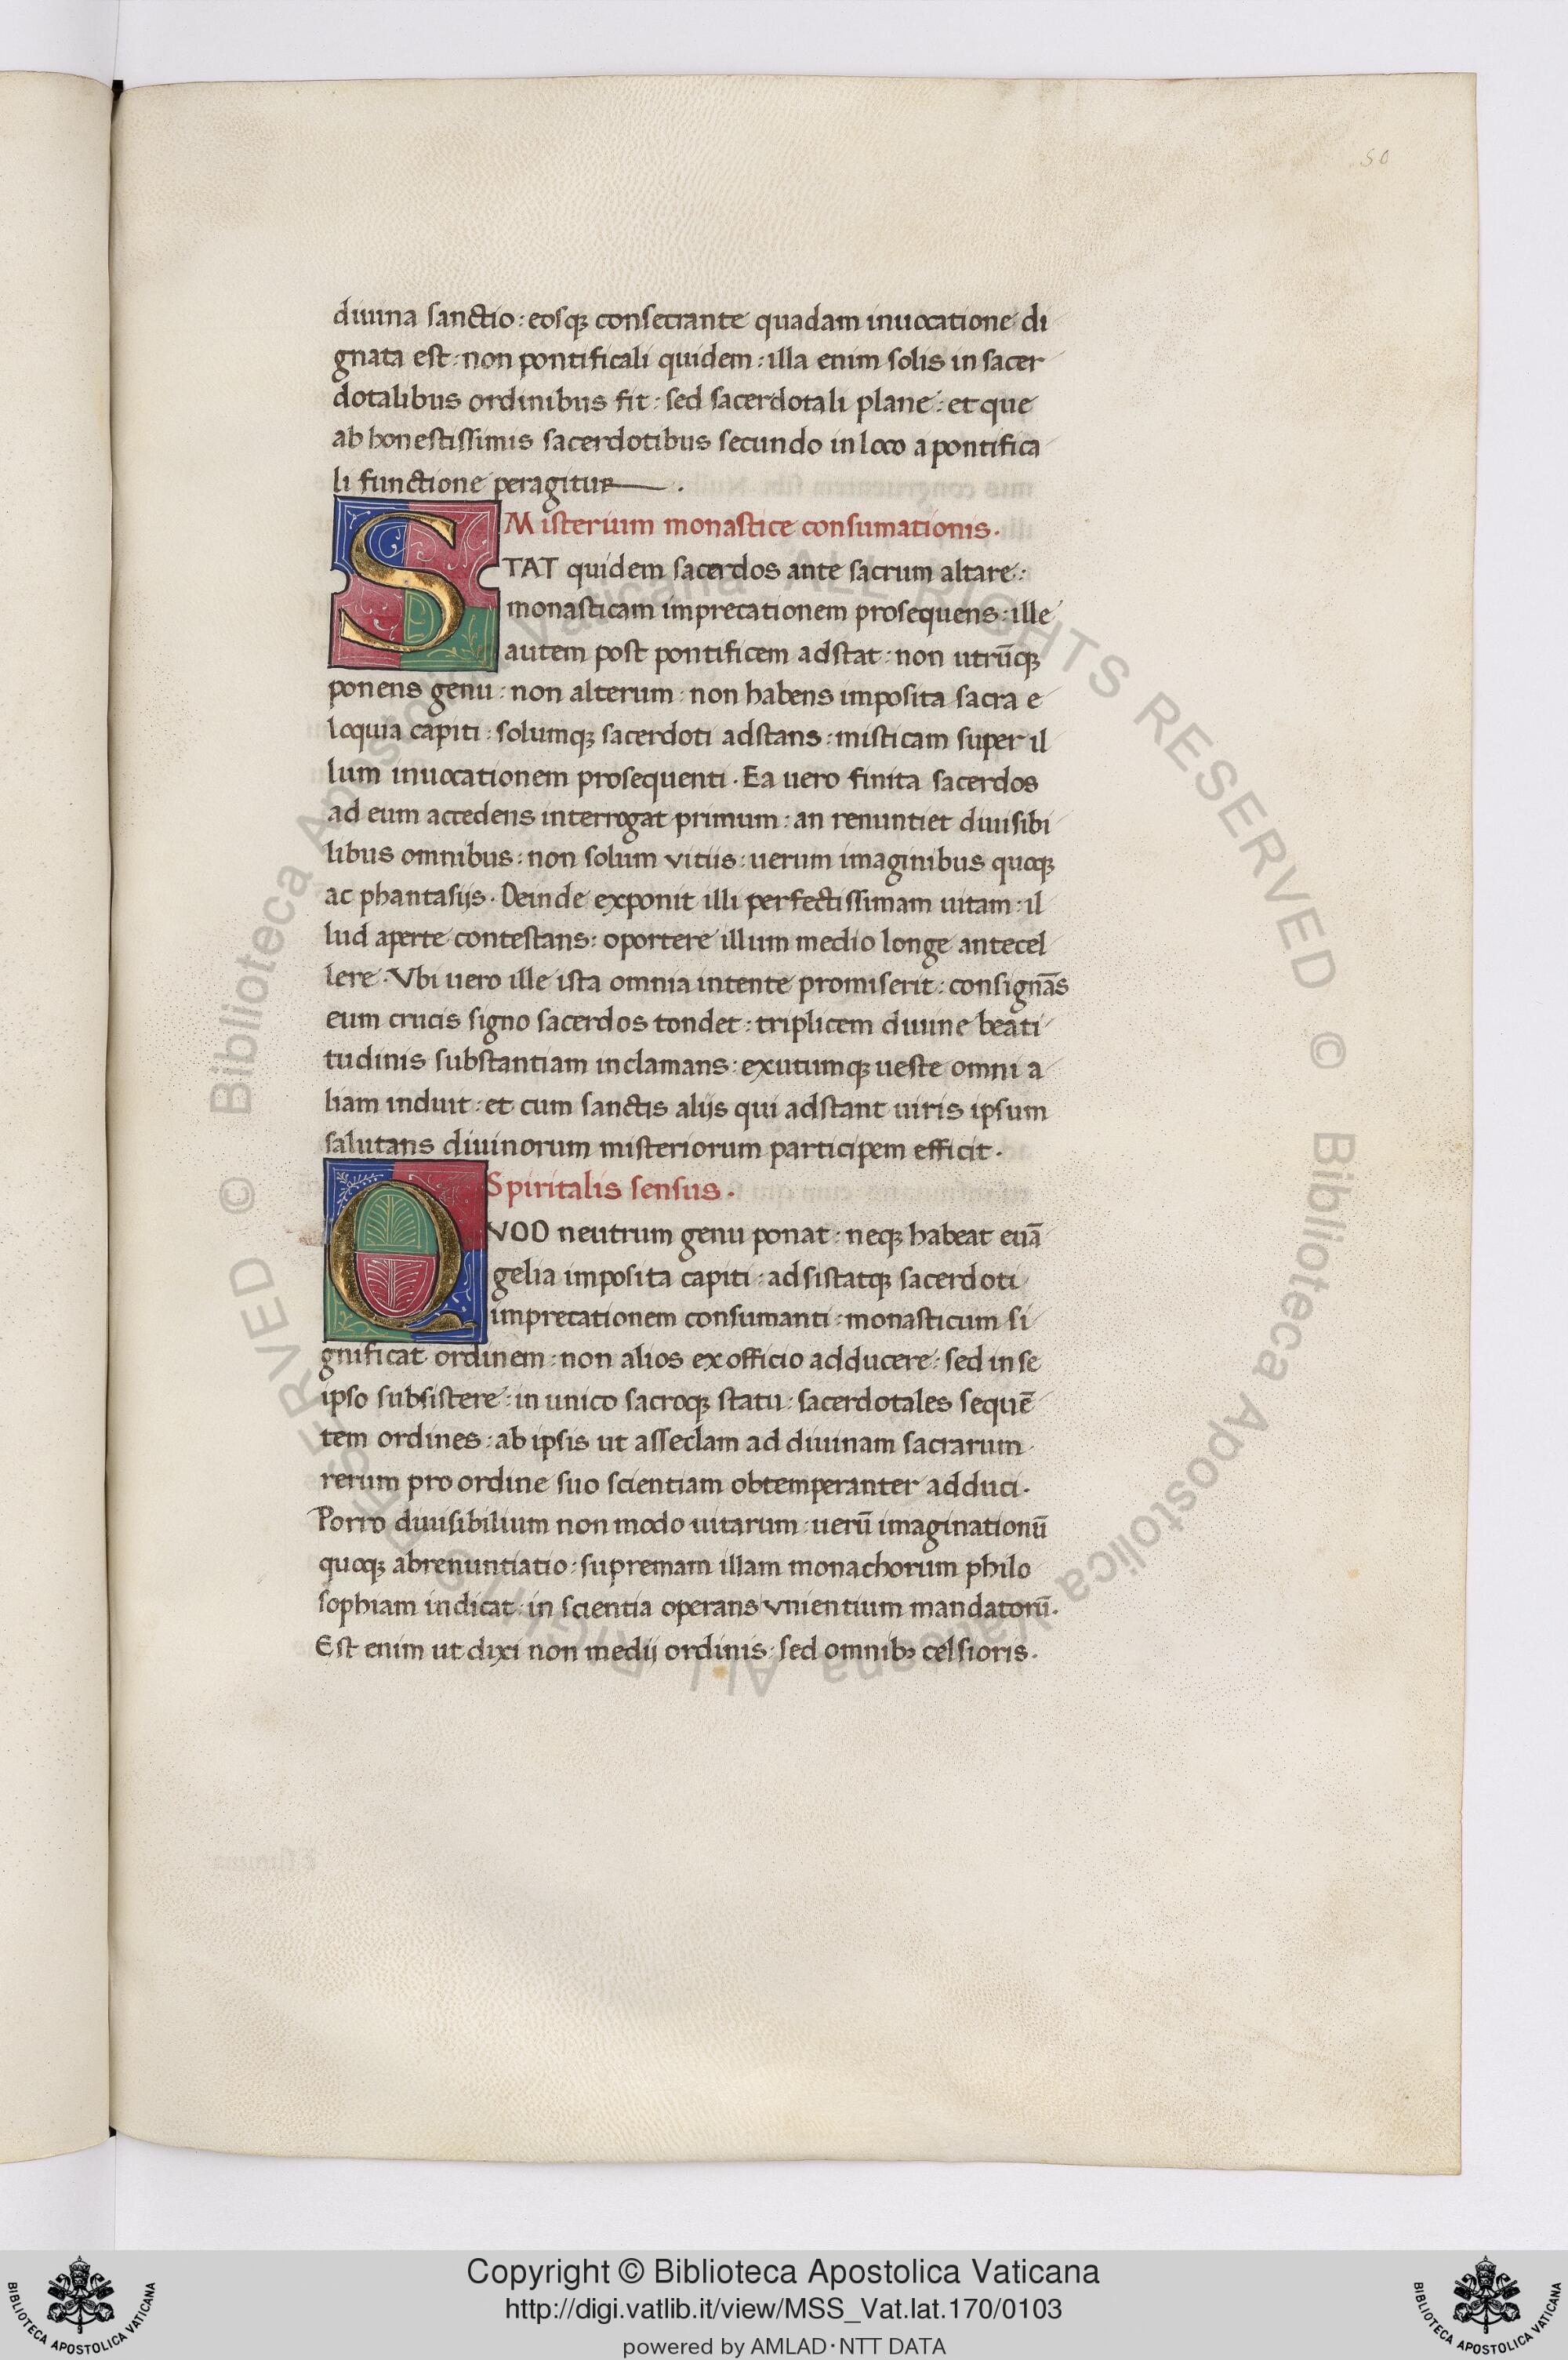 50
diuina sanctio: eosq; consecrante quadam inuocatione di
gnata est: non pontificali quidem: illa enim solis in sacer
dotalibus ordinibus fit: sed sacerdotali plane: et que
ab honestissimis sacerdotibus secundo in loco a pontifica
li functione peragitur.
Misterium monastice consumationis.
STAT quidem sacerdos ante sacrum altare:
monasticam imprecationem prosequens: ille
autem post pontificem adstat: non utrūq;
ponens genu: non alterum: non habens imposita sacra e
loquia capiti: solumq; sacerdoti adstans: misticam super il
lum inuocationem prosequenti. Ea uero finita sacerdos
ad eum accedens interrogat primum: an renuntiet diuisibi
libus omnibus: non solum vitiis: uerum imaginibus quoq;
ac phantasijs. Deinde exponit illi perfectissimam uitam: il
lud aperte contestans: oportere illum medio longe antecel
lere. Vbi uero ille ista omnia intente promiserit: consignās
eum crucis signo sacerdos tondet: triplicem diuine beati
tudinis substantiam inclamans: exutumq; ueste omni a
liam induit: et cum sanctis alijs qui adstant uiris ipsum
salutans diuinorum misteriorum participem efficit.
Spiritalis sensus.
QVOD neutrum genu ponat: neq; habeat euā
gelia imposita capiti: adsistatq; sacerdoti
imprecationem consumanti: monasticum si
gnificat ordinem: non alios ex officio adducere: sed in se
ipso subsistere: in unico sacroq; statu: sacerdotales sequē
tem ordines: ab ipsis ut asseclam ad diuinam sacrarum
rerum pro ordine suo scientiam obtemperanter adduci.
Porro diuisibilium non modo uitarum: uerū imaginationū
quoq; abrenuntiatio: supremam illam monachorum philo
sophiam indicat: in scientia operans vnientium mandatorū.
Est enim ut dixi non medij ordinis: sed omnib; celsioris.
© Biblioteca Apostolica Vaticana ALL RIGHTS RESERVED
© Biblioteca Apostolica Vaticana ALL RIGHTS RESERVED
Copyright © Biblioteca Apostolica Vaticana
http://digi.vatlib.it/view/MSS_Vat.lat.170/0103
powered by AMLAD·NTT DATA
BIBLIOTECA APOSTOLICA VATICANA
BIBLIOTECA APOSTOLICA VATICANA